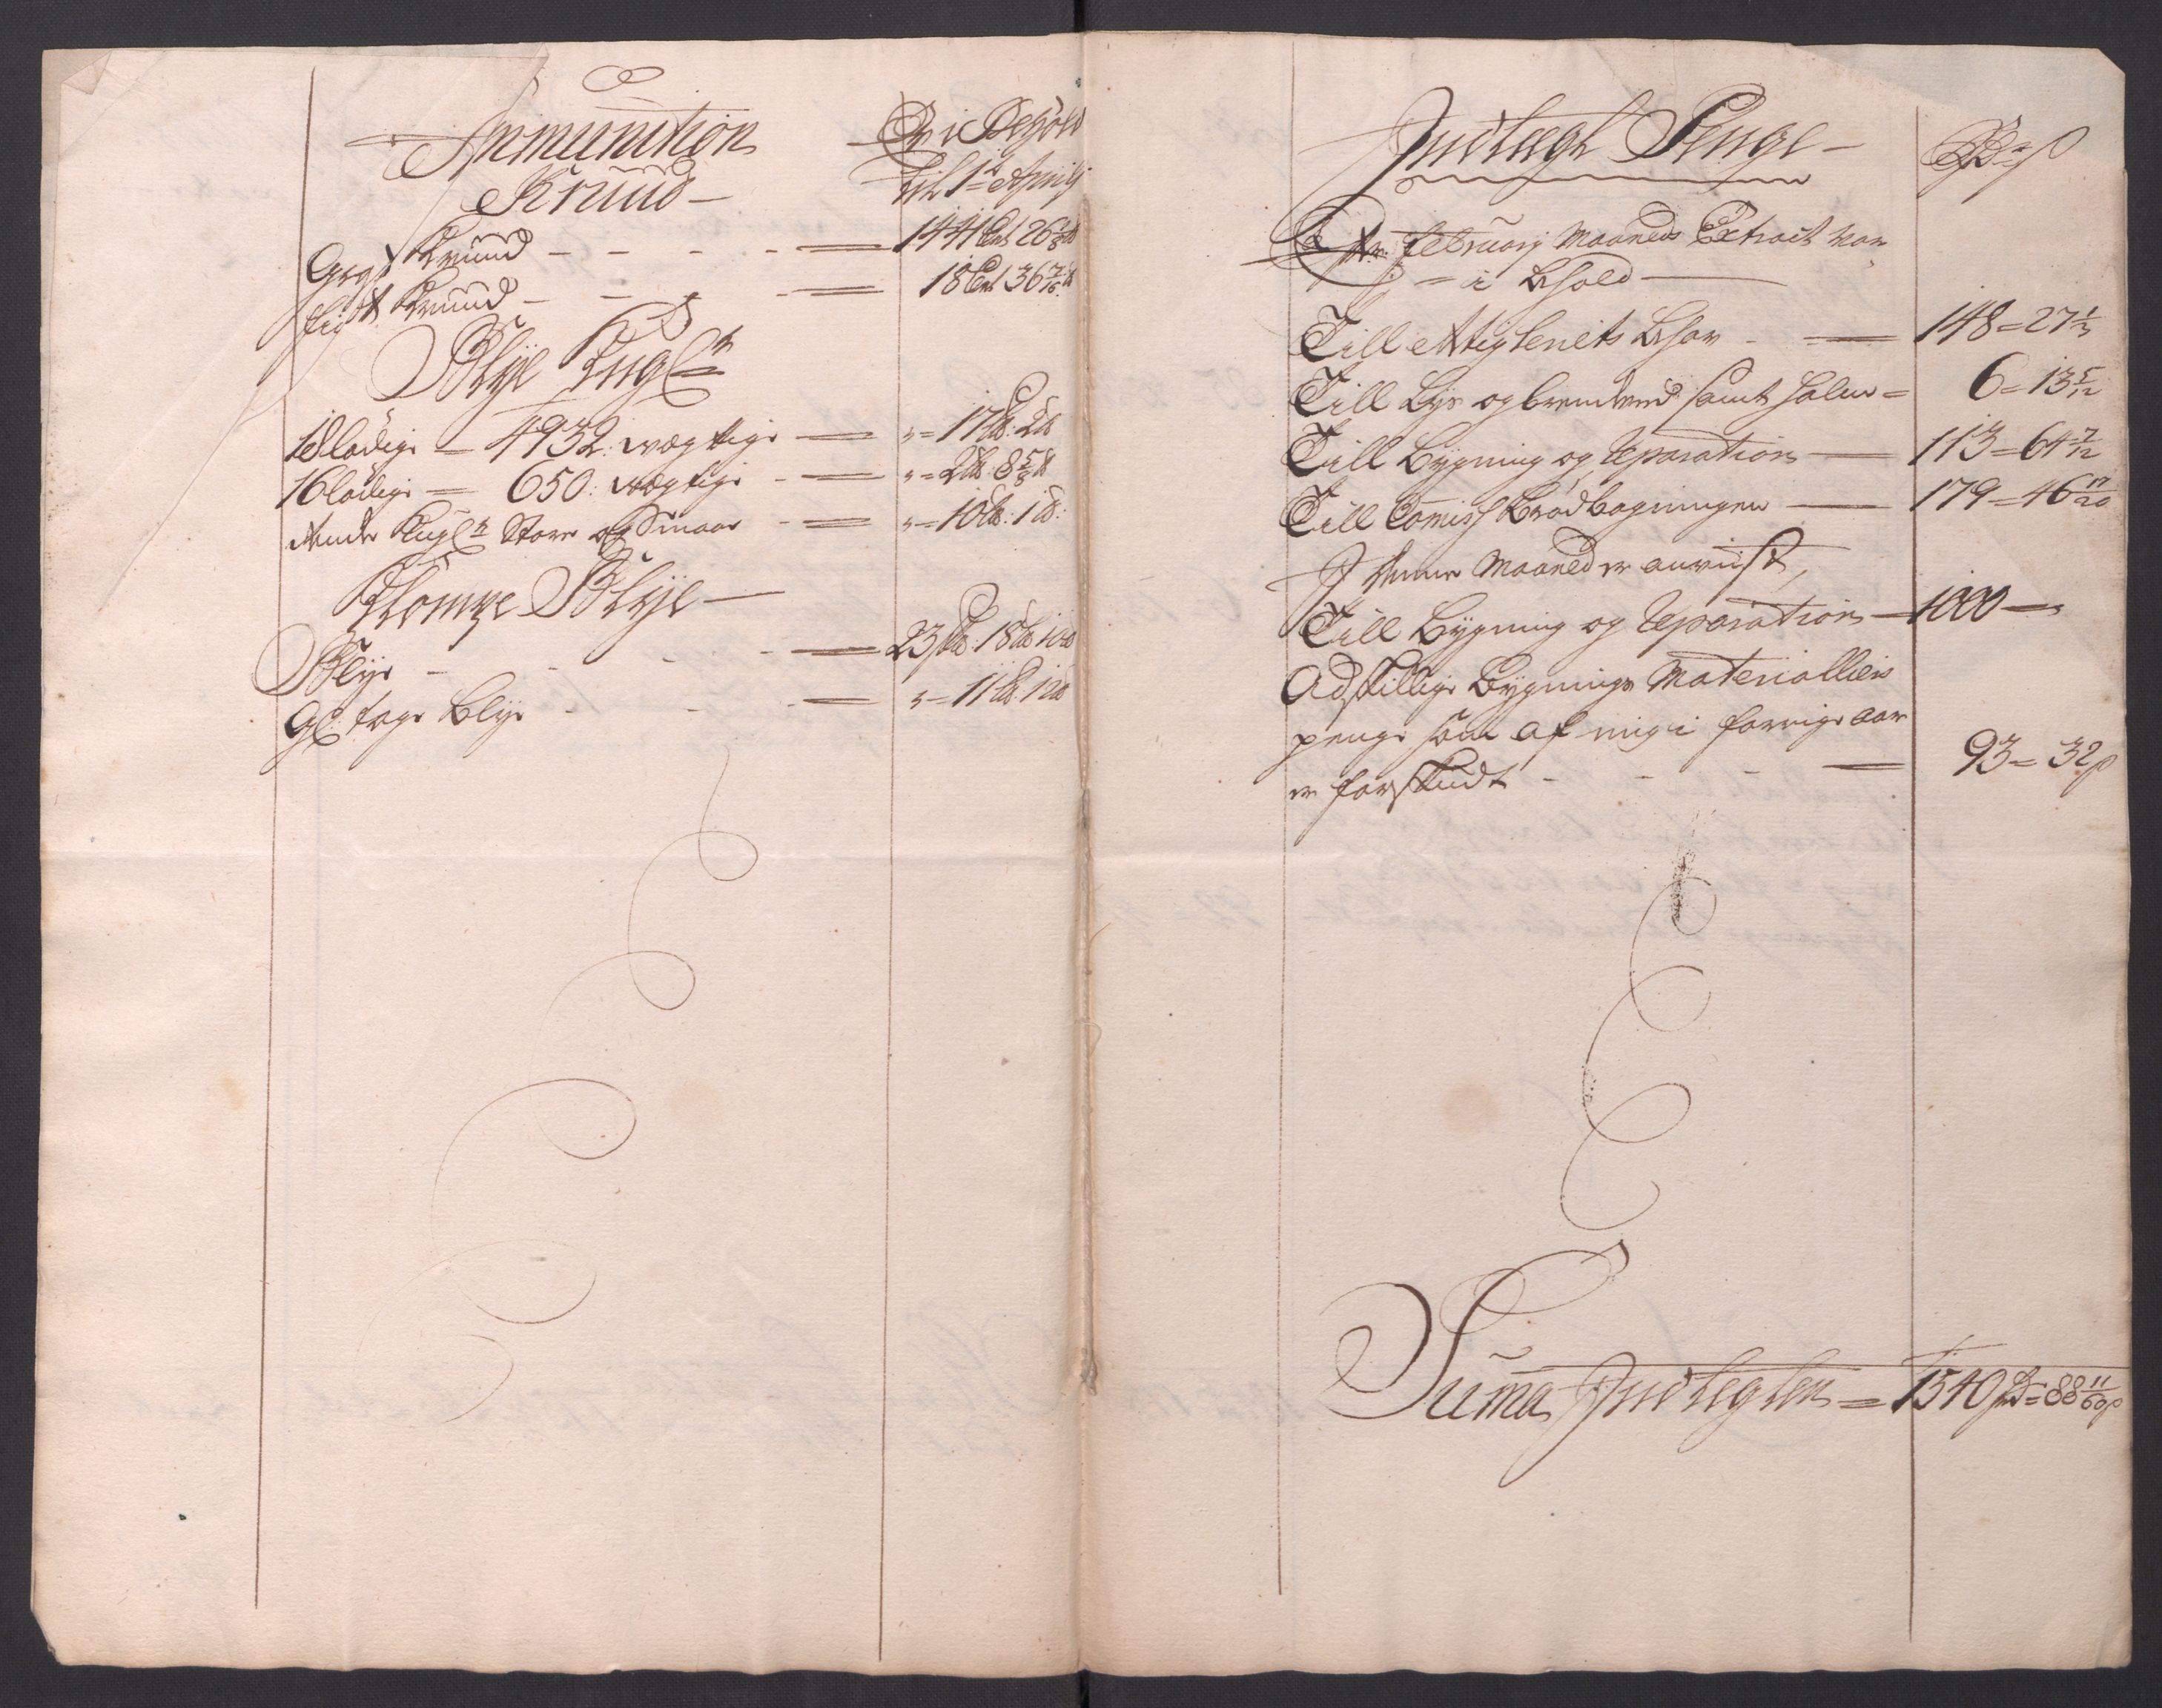 Ammunition
Krudt
Er i Behold
til 1te Aprilj
Groft Krudt - - - - 144 Cent 26
fiint Krudt - - - - 18 Cent 36 7/16
Blye Kugler
18 lödige - 4932: vægtige - 17 lb: 2 lb
16 lödige = 650: vægtige - 2 lb: 8 5/8 lb
Andre Kugler Store og Smaae - 10 lb: 1 lb:
Klompe Blye -
Blye - - - - 23 18 10
Gl: tage Blye - - - 11 12
Indtægt Penge -
Efter February Maaneds Extract var
i behold
Till Artigleriets behov - 148 = 27 1/3
Till Lys og brendeved samt halm = 6 = 13 5/12
Till Bygning og Reparation - 113 = 64 7/12
Till Comiss Brödbagningen - 179 = 46 17/20
J denne Maaned er anviist,
Till Bygning og Reparation - 1000 -
Adskillige Bygnings Materiallier
penge som af mig i forrige aar
er forskudt - - - 93 = 32 β
Suma Indtegten = 1540 Rd = 88 11/60 β